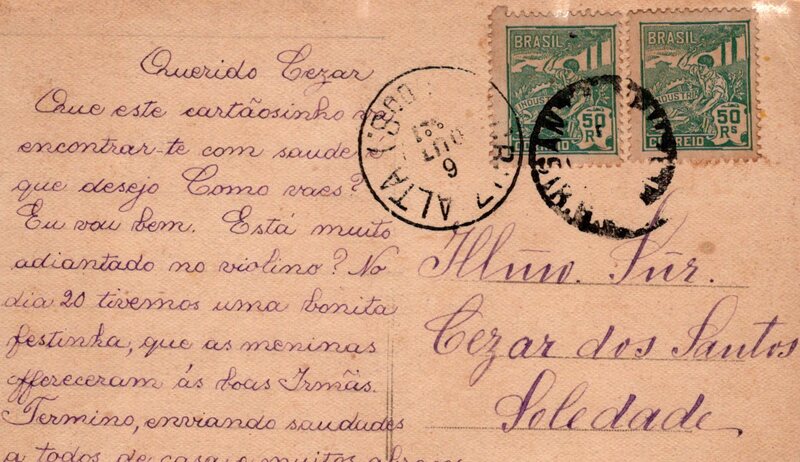 Querido Cezar
Que este cartãosinho
encontrar-te com saude e
que desejo Como vaes?
Eu vou bem. Está muito
adiantado no violino? No
dia 20 tivemos uma bonita
festinha, que as meninas
offereceram ás boas Irmãs.
Termino, enviando saudades
a todos de casa e muitos abraços
BRASIL
INDUSTRIA
50
RS
CORREIO
BRASIL
INDUSTRIA
50
RS
CORREIO
CRUZ ALTA
9
OUT
Illmo. Snr.
Cezar dos Santos
Soledade